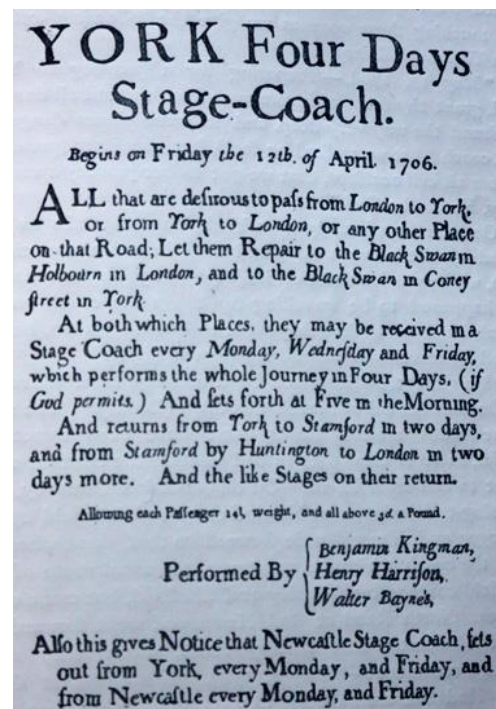 YORK Four Days
Stage-Coach.
Begins on Friday the 12th. of April. 1706.
ALL that are deſirous to paſs from London to York,
or from York to London, or any other Place
on that Road; Let them Repair to the Black Swan in
Holbourn in London, and to the Black Swan in Coney
ſtreet in York.
At both which Places, they may be received in a
Stage Coach every Monday, Wedneſday and Friday,
which performs the whole Journey in Four Days, (if
God permits.) And ſets forth at Five in the Morning.
And returns from York to Stamford in two days,
and from Stamford by Huntington to London in two
days more. And the like Stages on their return.
Allowing each Paſſenger 14l, weight, and all above 3d a Pound.
Performed By { Benjamin Kingman,
Henry Harriſon,
Walter Bayne's,
Alſo this gives Notice that Newcaſtle Stage Coach, ſets
out from York, every Monday, and Friday, and
from Newcaſtle every Monday, and Friday.